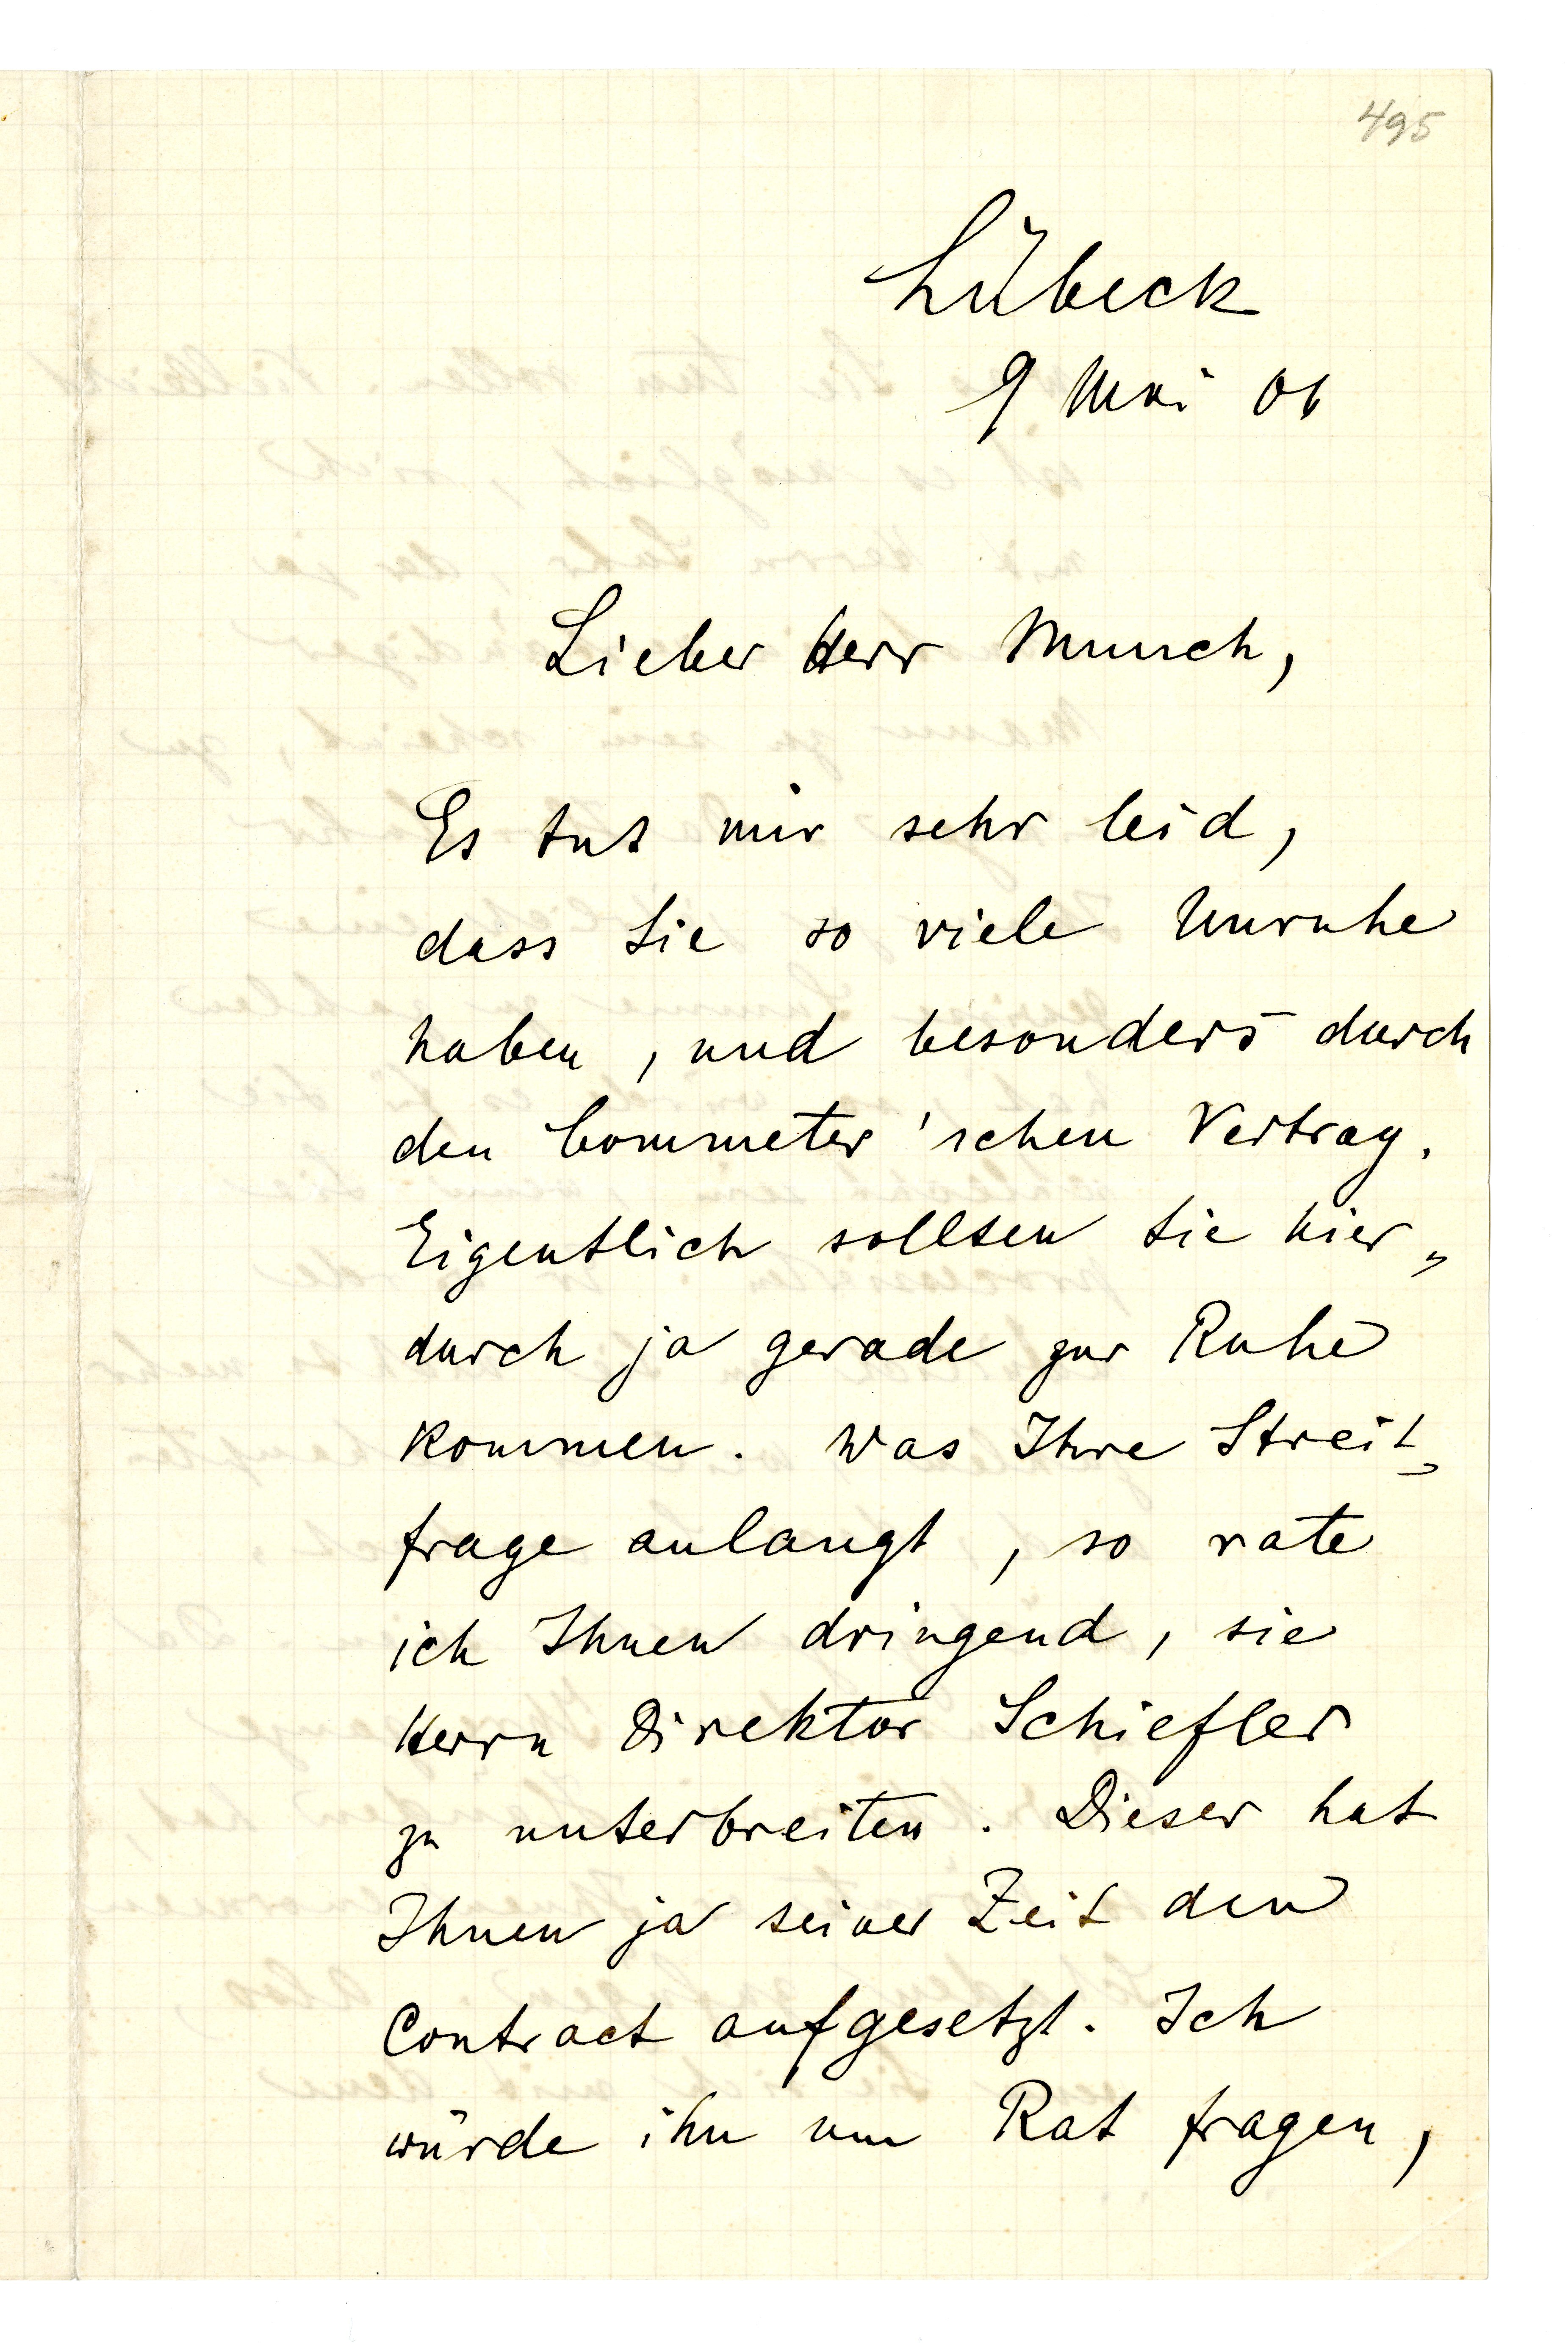 495
Lübeck
9 Mai 06
Lieber Herr Munch,
Es tut mir sehr leid,
dass Sie so viele Unruhe
haben, und besonders durch
den Commeter'schen Vertrag.
Eigentlich sollten Sie hier-
durch ja gerade zur Ruhe
kommen. Was Ihre Streit-
frage anlangt, so rate
ich Ihnen dringend, sie
Herrn Direktor Schiefler
zu unterbreiten. Dieser hat
Ihnen ja seiner Zeit den
Contract aufgesetzt. Ich
würde ihn um Rat fragen,